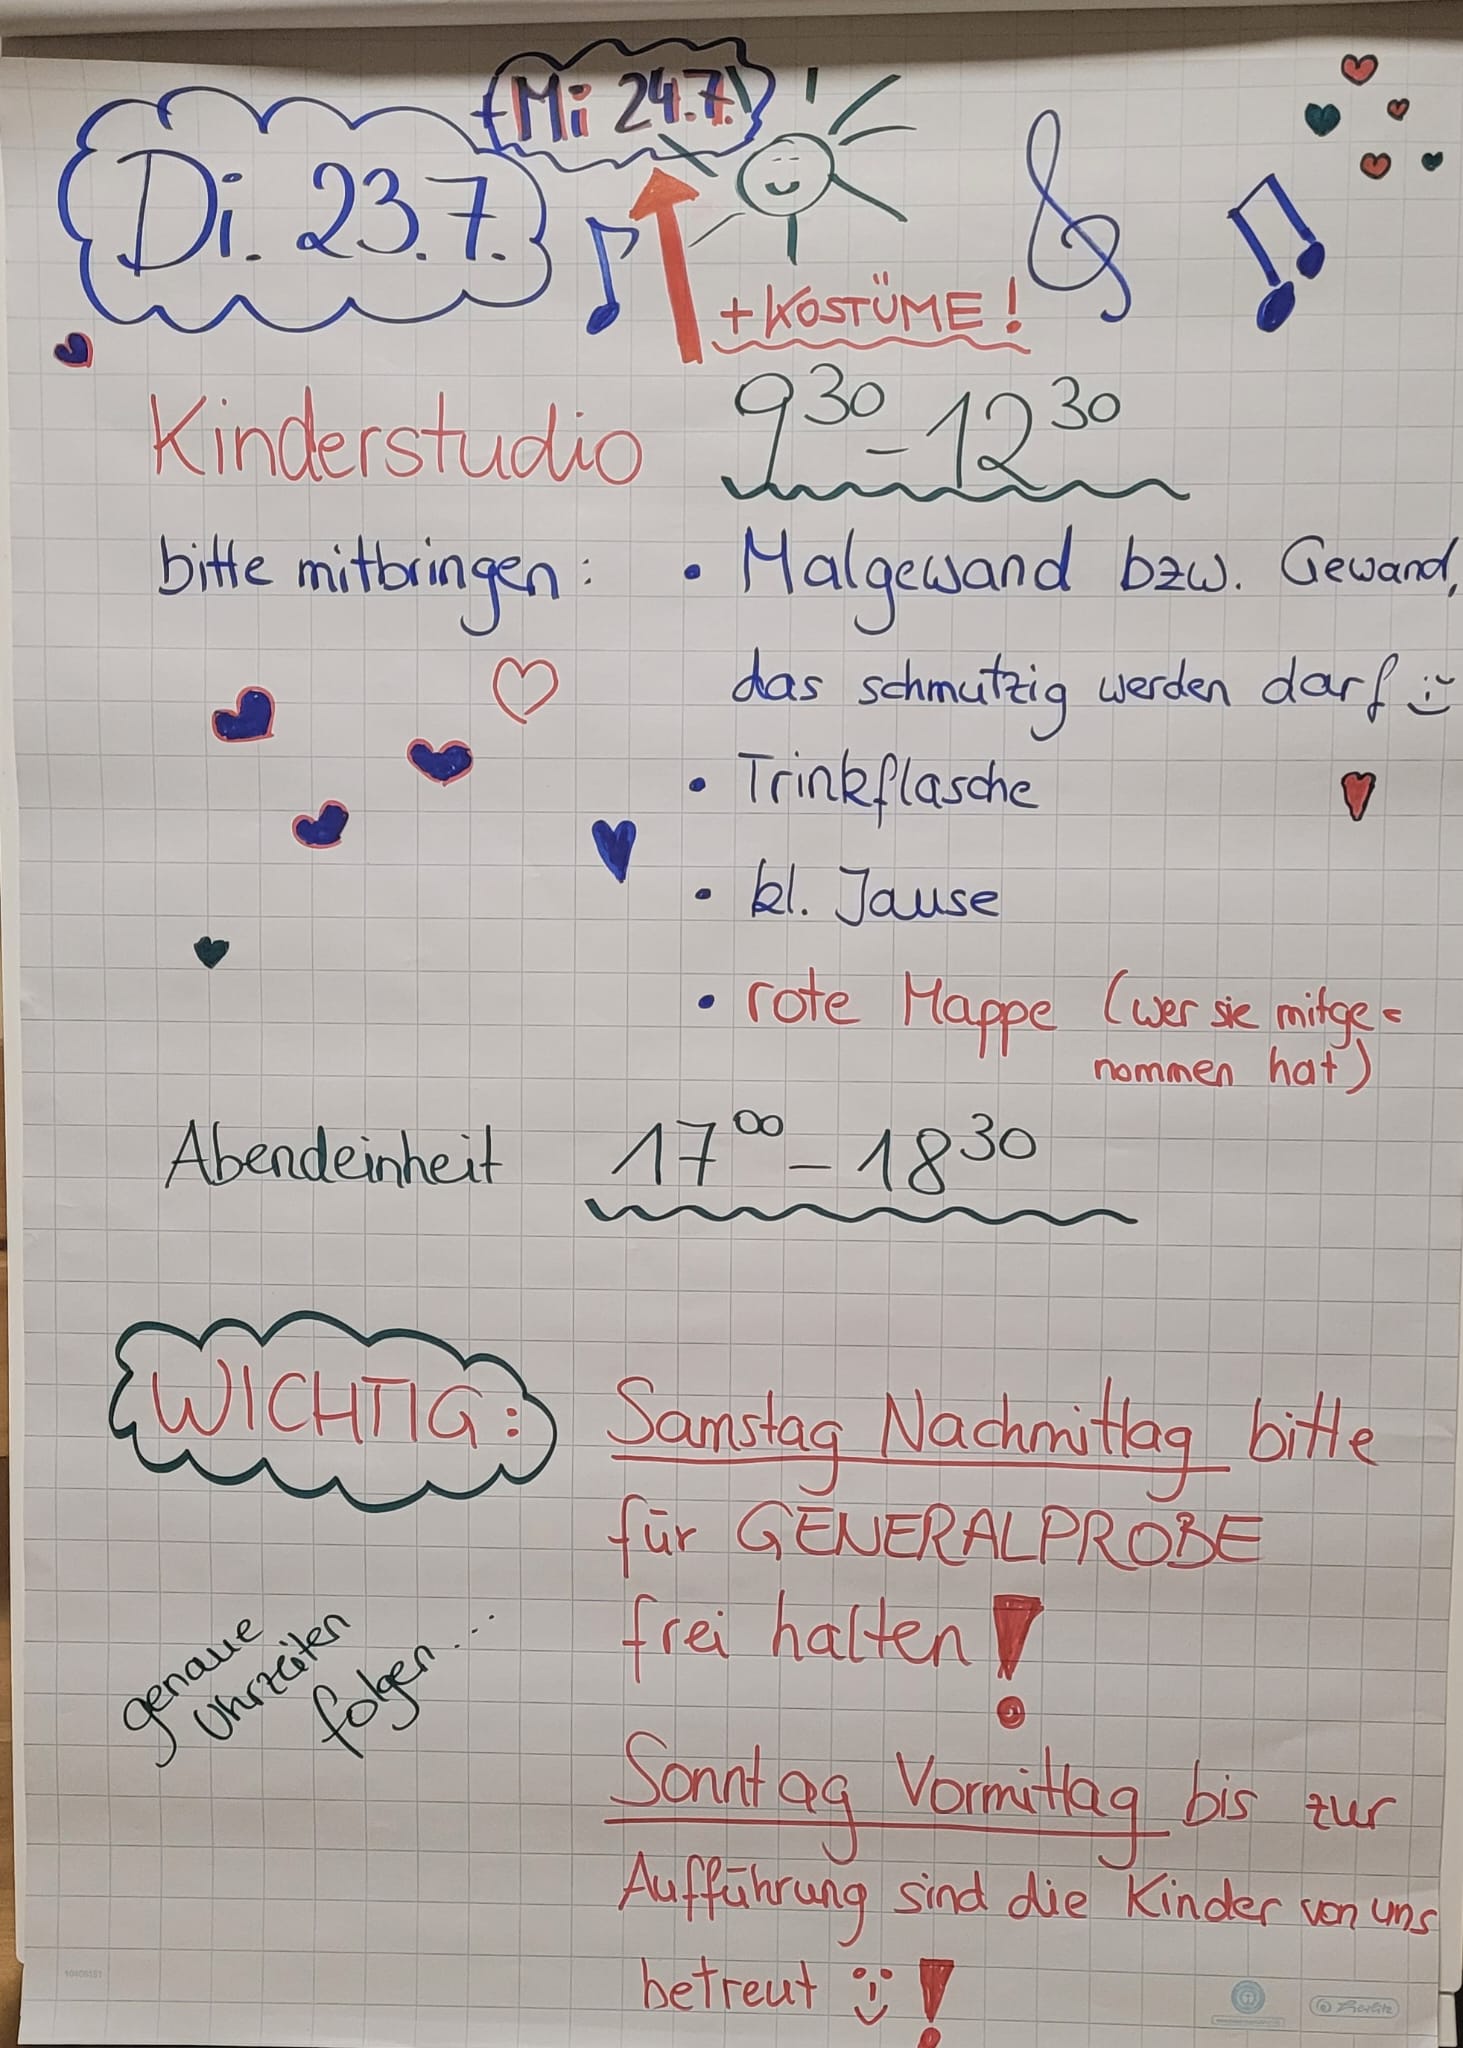 + Mi 24.7.
Di. 23.7.
+ KOSTÜME!
Kinderstudio 9³⁰ - 12³⁰
bitte mitbringen: • Malgewand bzw. Gewand,
das schmutzig werden darf
• Trinkflasche
• kl. Jause
• rote Mappe (wer sie mitge=
nommen hat)
Abendeinheit 17⁰⁰ - 18³⁰
WICHTIG: Samstag Nachmittag bitte
für GENERALPROBE
frei halten!
genaue
Uhrzeiten
folgen...
Sonntag Vormittag bis zur
Aufführung sind die Kinder von uns
betreut !
Herlitz